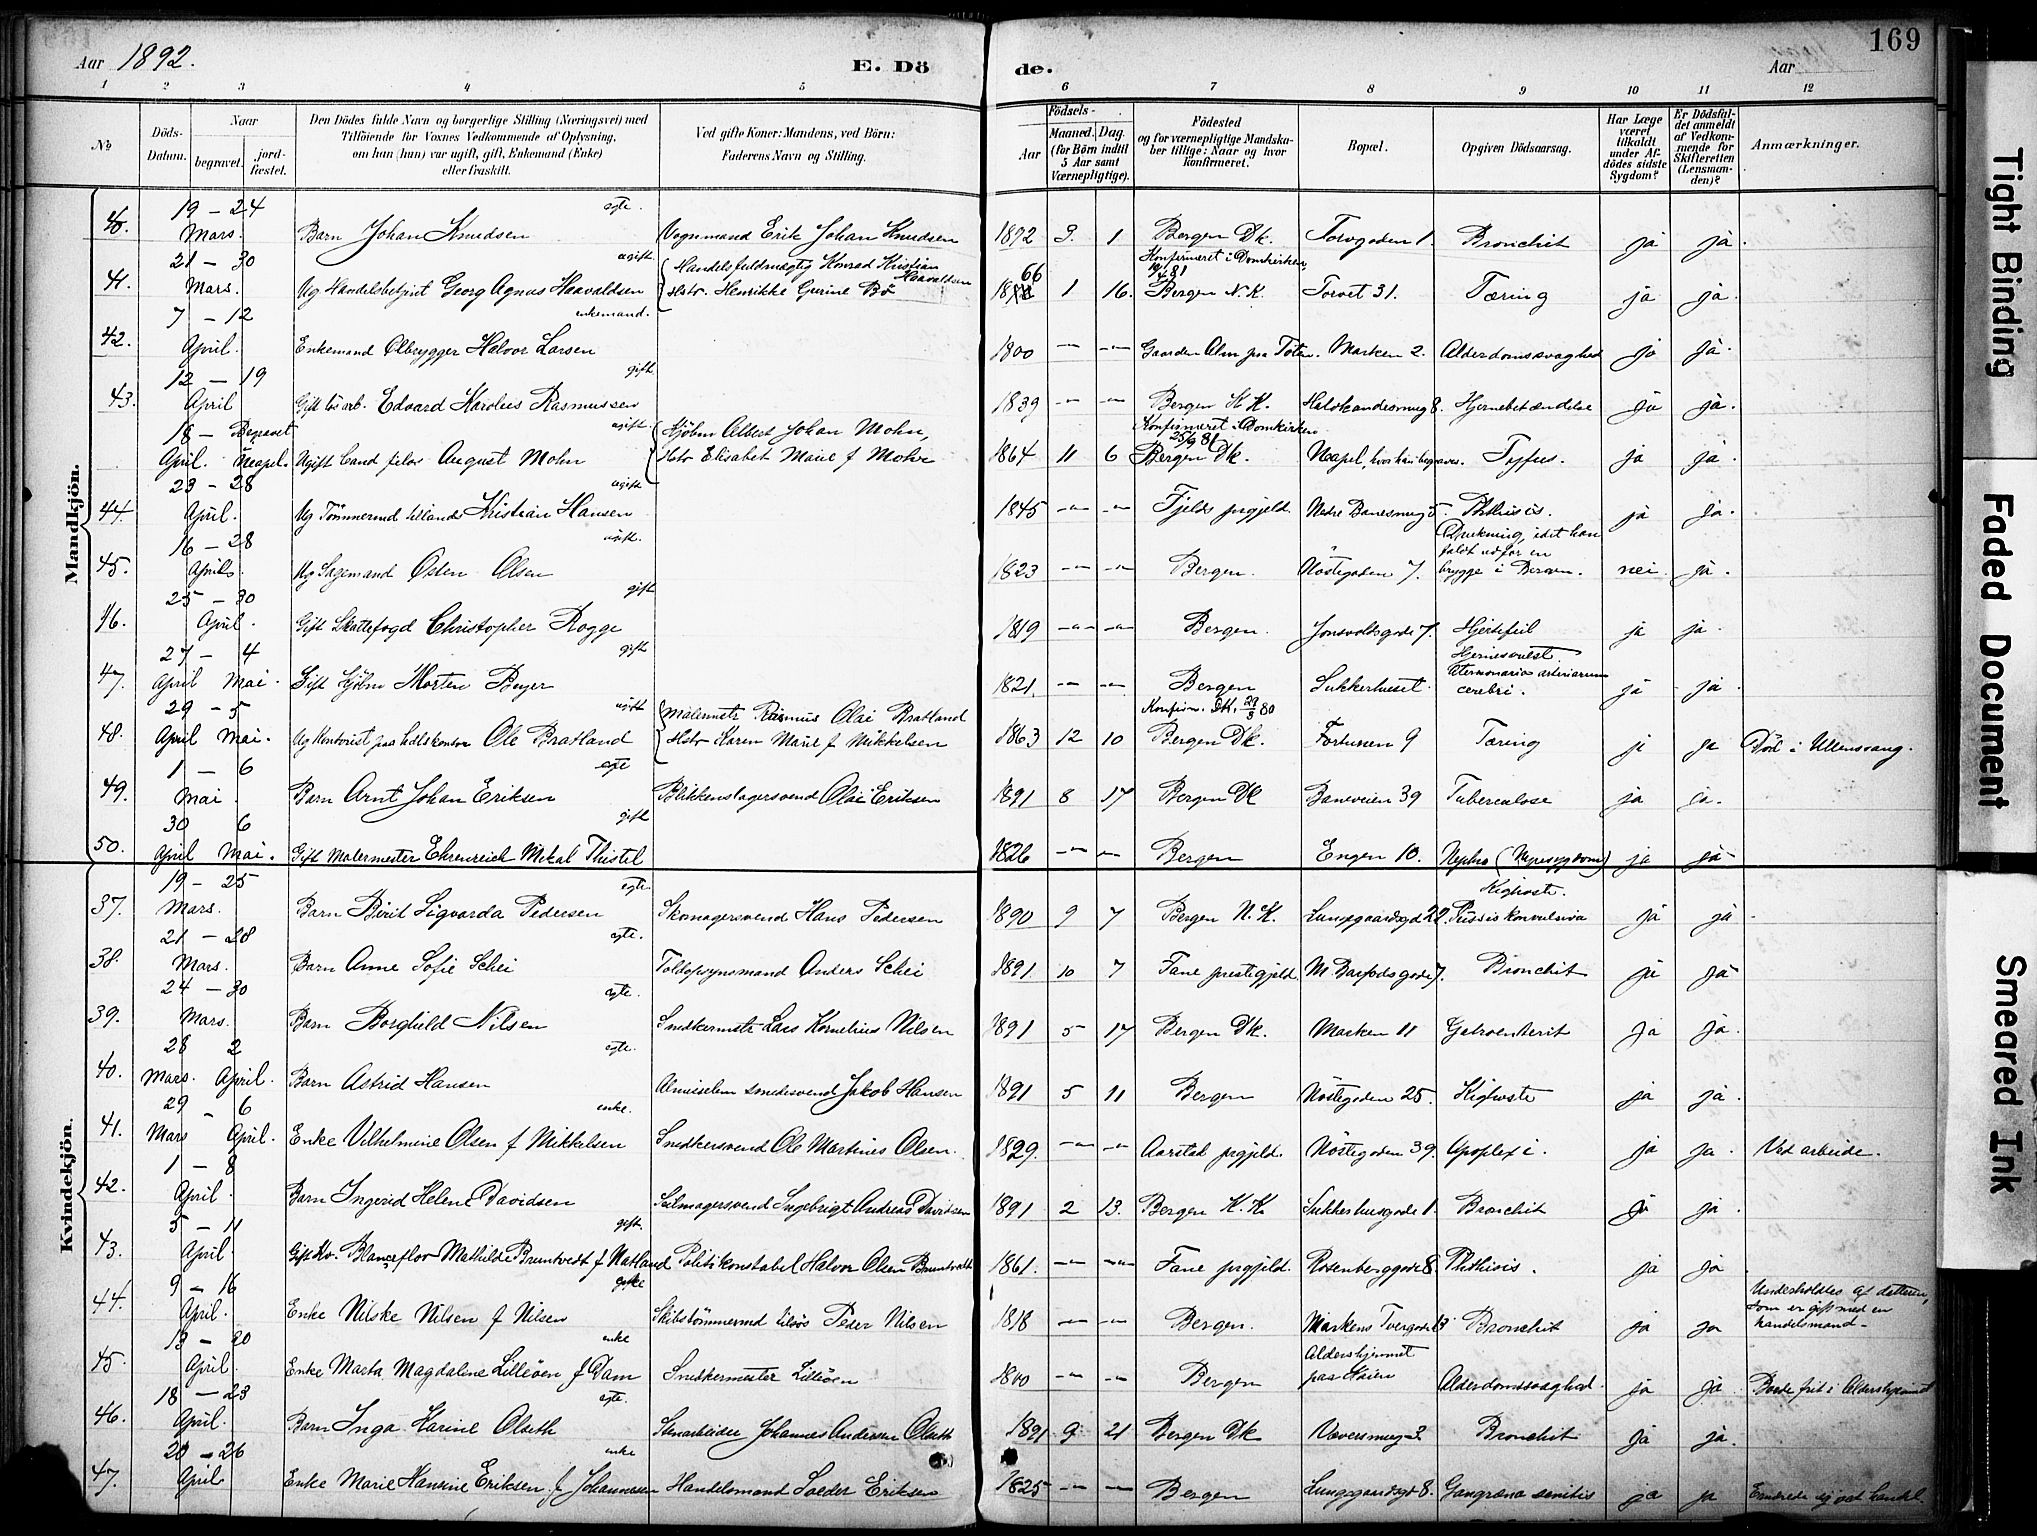 169
Aar 1892. E. Dö de. Aar
1 2 3 4 5 6 7 8 9 10 11 12
№
Döds-Datum.
Naar begravet. jordfæstet.
Den Dödes fulde Navn og borgerlige Stilling (Næringsvei) med Tilföiende for Voxnes Vedkommende af Oplysning, om han (hun) var ugift, gift, Enkemand (Enke) eller fraskilt.
Ved gifte Koner: Mandens, ved Börn: Faderens Navn og Stilling.
Födsels- Aar Maaned. Dag. (for Börn indtil 5 Aar samt Værnepligtige).
Födested og for værnepligtige Mandskaber tillige: Naar og hvor konfirmeret.
Bopæl.
Opgiven Dödsaarsag.
Har Læge været tilkaldt under Afdödes sidste Sygdom?
Er Dödsfaldet anmeldt af Vedkommende for Skifteretten (Lensmanden)?
Anmærkninger.
Mandkjön.
40. 19 – 24 Mars. Barn Johan Knudsen ægte. Vognmand Erik Johan Knudsen 1892 3. 1 Bergen Dk. Torvgaden 1. Bronchit ja ja.
41. 21 – 30 Mars. Ug Handelsbetjent Georg Agnus Haavaldsen ugift Handelsfuldmægtig Konrad Kristian Haavaldsen Hstr. Henrikke Gurine Bö 1866 1 16. Konfirmeret i Domkirken 81 Bergen N.K. Torvet 31. Tæring ja ja.
42. 7 – 12 April. Enkemand Ølbrygger Halvor Larsen enkemand. 1800 – – Gaarden Alm paa Toten. Marken 2. Alderdomssvaghed ja ja.
43. 12 – 19 April Gift lösarb. Edvard Karolius Rasmussen gift 1839 – – Bergen K.K. Hjernebetændelse ja ja.
18 – Begravet April. Neapel. Ugift Cand filos August Mohn ugift Kjöbm Albert Johan Mohn, Hstr Elisabet Marie f Mohr 1864 11 6 Konfirmeret i Domkirken 25/9 81 Bergen Dk. Neapel, hvor han begraves. Tyfus. ja ja.
44. 23 – 28 April. Ug Tömmermd tillands Kristian Hansen ugift 1845 – – Fjelds prgjeld. Nedre Banesmug 5. Phthisis. ja ja.
45. 16 – 28 April. Ug Sagemand Østen Olsen ugift. 1823 – – Bergen. Nöstegaden 7. Drukning, idet han faldt ud for en brygge i Bergen. nei. ja.
46. 25 – 30 April. Gift Skattefogd Christopher Rogge gift 1819 – – Bergen. Jonsvoldsgade 7. Hjertefeil ja ja.
47. 27 – 4 April Mai. Gift Kjöbm Morten Beyer gift 1821. – – Bergen Sukkerhuset. cerebri. ja ja.
48. 29 – 5 April Mai. Ug Kontorist paa Ole Bratland ugift Malermstr Rasmus Olai Bratland Hstr Karen Marie f Mikkelsen 1863 12 10 Konfirm. Dk. 29/3 80 Bergen Dk. Fortunen 9 Tæring ja ja Död i Ullensvang.
49. 1 – 6 Mai Barn Arnt Johan Eriksen ægte Blikkenslagersvend Olai Eriksen 1891 8 17 Bergen Dk Baneveien 39 Tuberculose ja ja.
50. 30 6 April Mai. Gift Malermester Ehrenreich Mikal Thistel gift 1826 – – Bergen Engen 10. Nephro (Nyresygdom) ja ja
Kvindekjön.
37. 19 – 25 Mars. Barn Birit Sigvarda Pedersen ægte. Skomagersvend Hans Pedersen 1890 9 7 Bergen N.K. Lungegaardsgd 22 Kighoste. Tussis konvulsiva ja ja
38. 21 – 28 Mars. Barn Anne Sofie Schei ægte. Toldopsynsmand Anders Schei 1891. 10 7 Fane prestegjeld Bronchit ja ja
39. 24 – 30 Mars. Barn Borghild Nilsen ægte. Snedkermstr Lars Kornelius Nilsen 1891 5 17 Bergen Dk. Marken 11 Gatroenterit ja ja.
40. 28 2 Mars. April. Barn Astrid Hansen ægte. smedesvend Jakob Hansen 1891 5 11 Bergen Nöstegaden 25. Kighoste ja ja.
41. 29 – 6 Mars April. Enke Vilhelmine Olsen f Mikkelsen enke. Snedkersvend Ole Martines Olsen. 1829. – – Aarstad prgjeld. Nöstegaden 39. Apoplexi. ja ja. Ved arbeide.
42. 1 – 8 April. Barn Ingerid Helene Davidsen Seilmagersvend Ingebrigt Andreas Davidsen 1891 2 13. Bergen K.K. Sukkerhusgade 1. Bronchit ja ja.
43. 5 – 11 April. Gift Kv. Blanceflor Mathilde Bruntvedt f Natland gift. Politikonstabel Halvor Olsen Bruntvedt 1861. – – Fane prgjeld. Rosenberggade 8. Phthisis. ja ja
44. 9 – 16 April. Enke Nilske Nilsen f Nilsen enke Skibstömmermd Peder Nilsen 1818 – – Bergen. Markens Tvergade 3 Bronchit ja ja Underholdes af datteren, som er gift med en handelsmand.
45. 13 – 20 April. Enke Marta Magdaline Lilleöen f Dam enke Snedkermester Lilleöen 1800 – – Bergen Aldershjemmet paa Möien Alderdomssvaghed. ja ja Boede frit i Aldershjemmet
46. 18 – 23 April. Barn Inga Karine Olseth ægte. Stenarbeider Johannes Andersen Olseth 1891 9 21 Bergen Dk Væversmug 3. Bronchit ja ja.
47. 20 – 26 April Enke Marie Hansine Eriksen f Johannessen enke Handelsmand Soeder Eriksen 1825 – – Bergen Lungegaardsgd 8. Gangræna senilis ja ja
Tight Binding
Faded Document
Smeared Ink